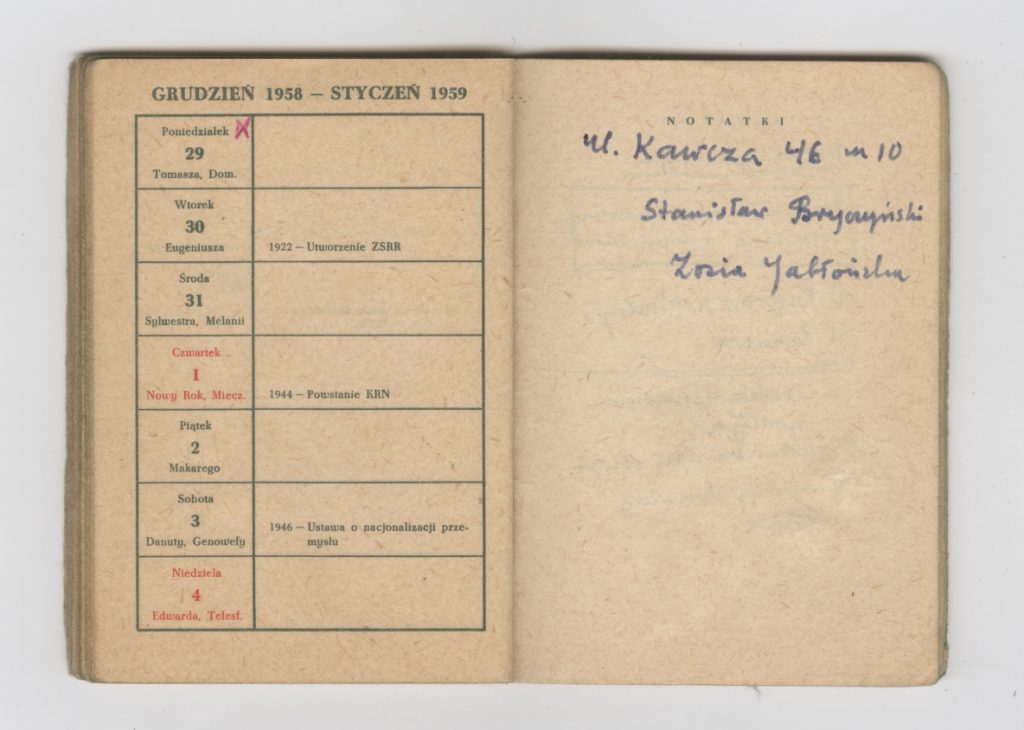 GRUDZIEŃ 1958 — STYCZEŃ 1959
Poniedziałek X
29
Tomasza, Dom.
Wtorek
30
Eugeniusza
1922 — Utworzenie ZSRR
Środa
31
Sylwestra, Melanii
Czwartek
1
Nowy Rok, Miecz.
1944 — Powstanie KRN
Piątek
2
Makarego
Sobota
3
Danuty, Genowefy
1946 — Ustawa o nacjonalizacji prze-
mysłu
Niedziela
4
Edwarda, Telesf.
NOTATKI
ul. Kawcza 46 m 10
Stanisław Bryczyński
Zosia Jabłońska